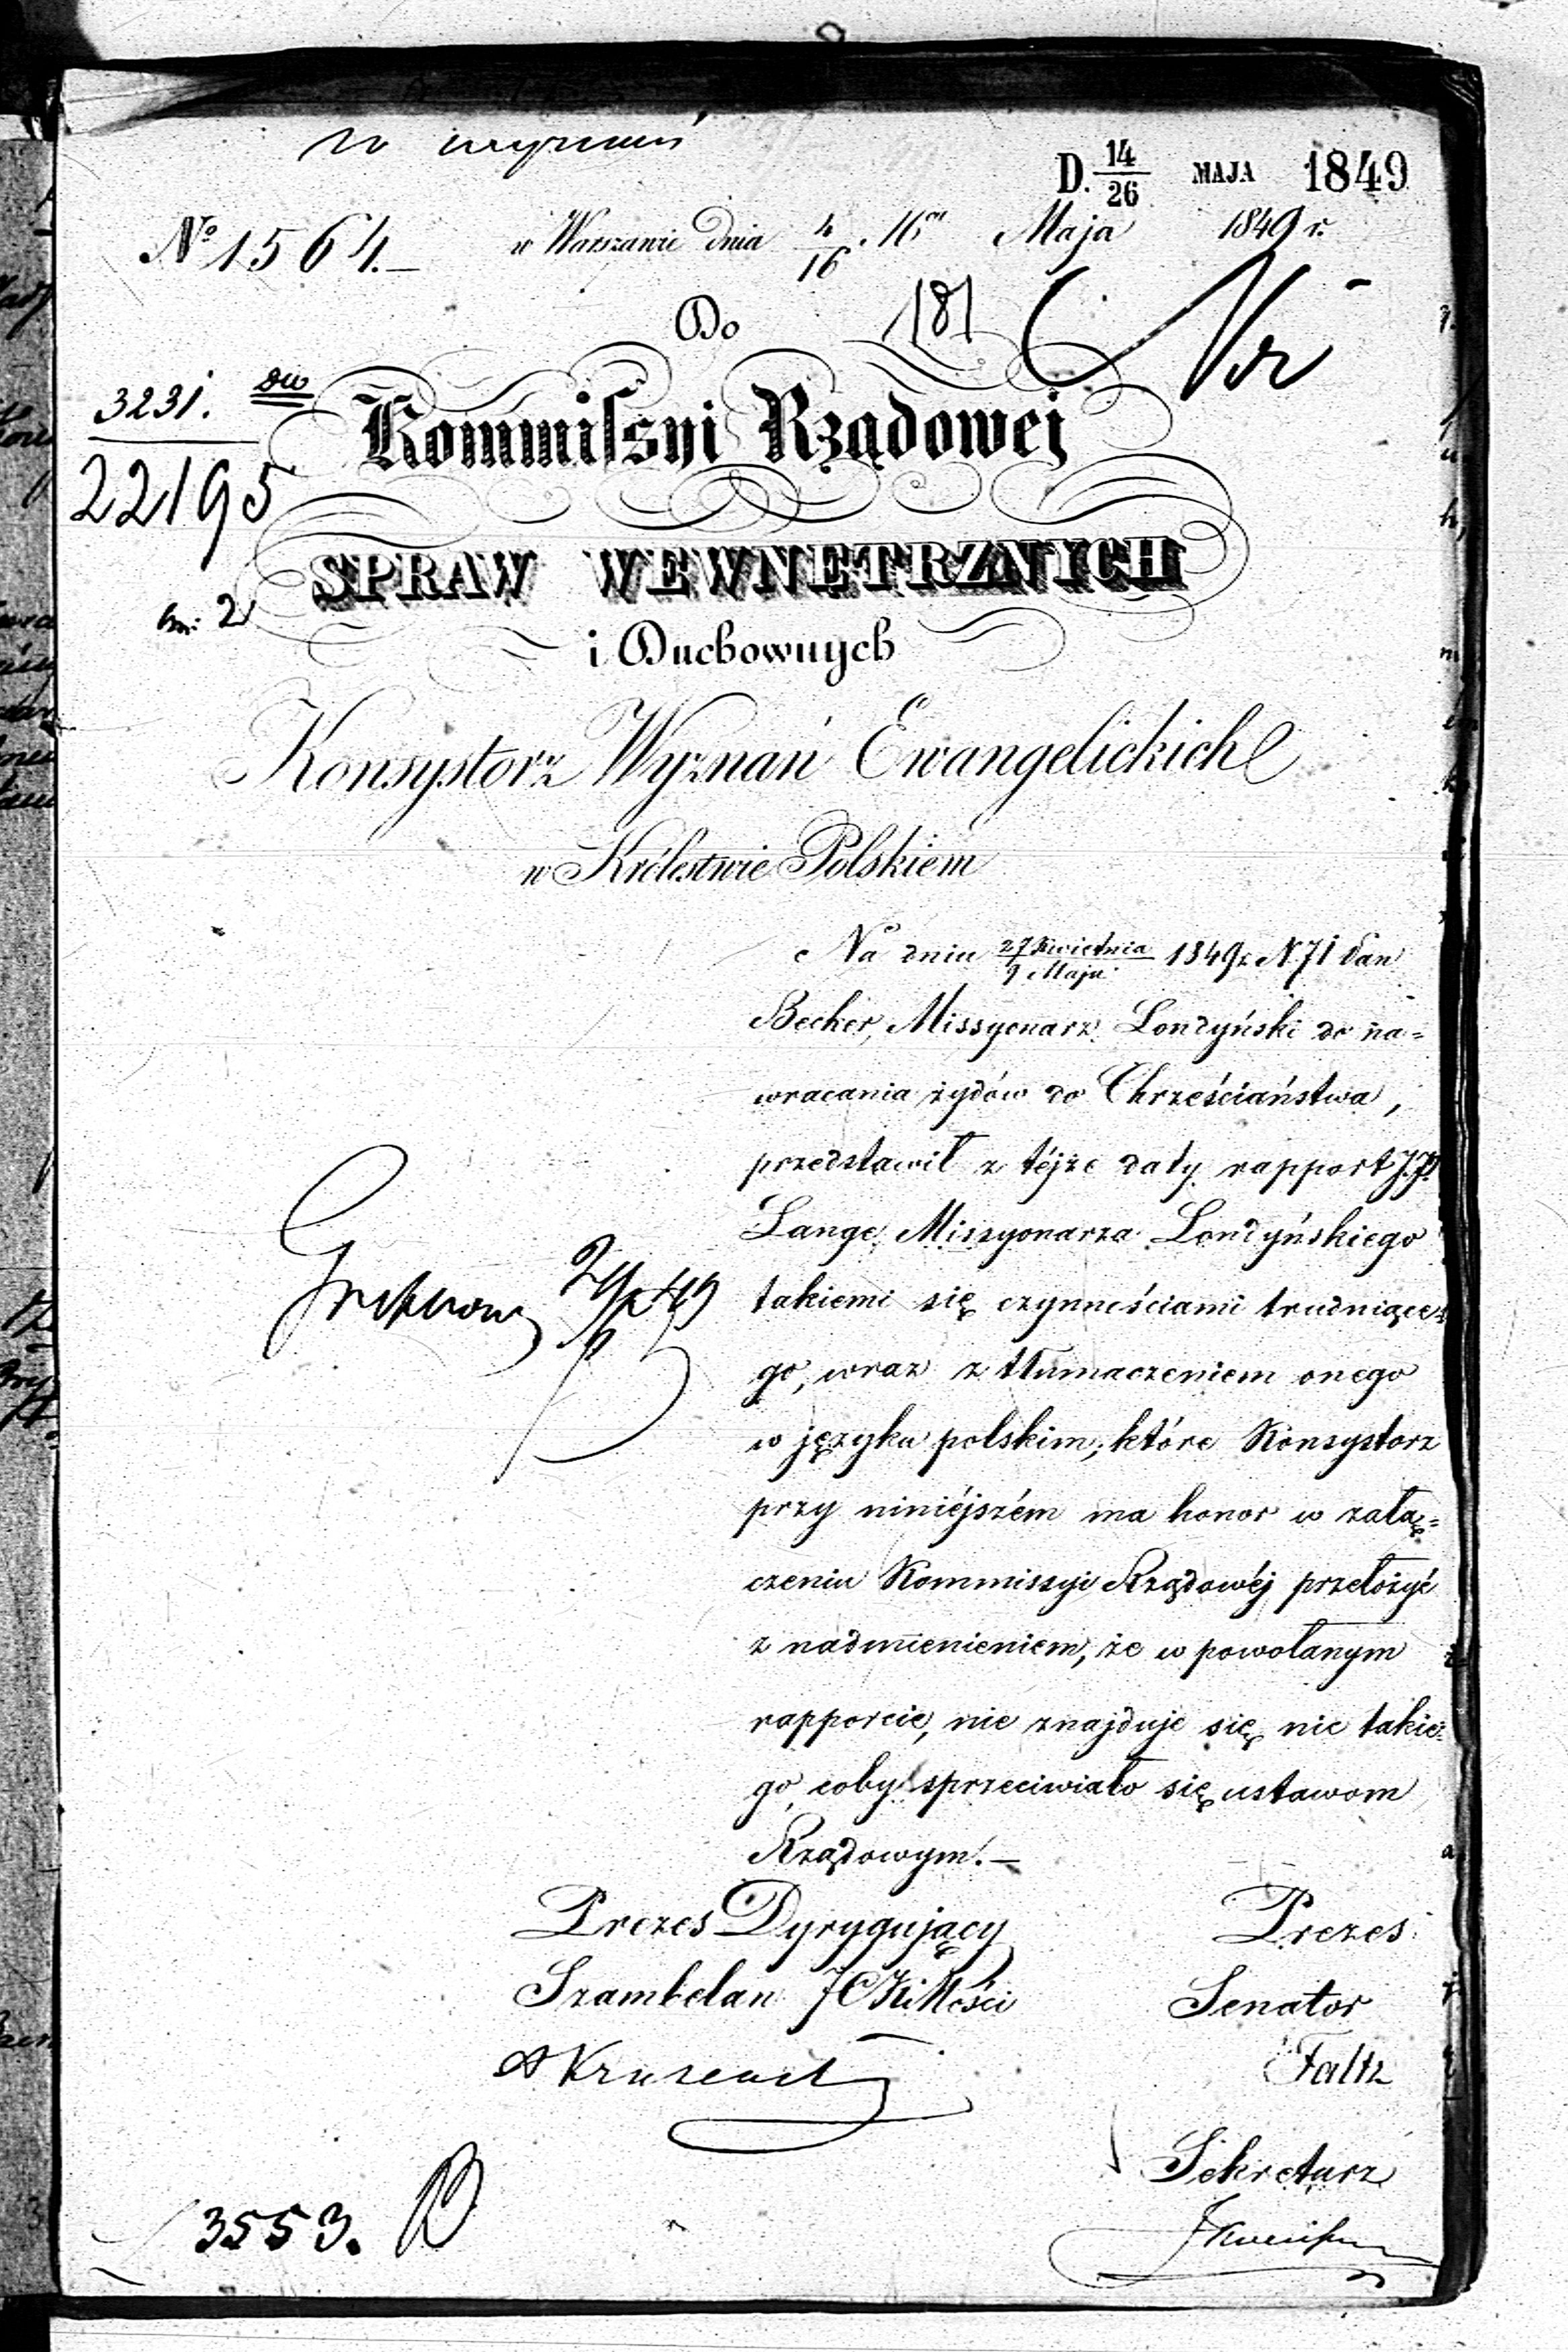 D. 14/26 MAJA 1849
No 1564.—
w Warszawie dnia 4/16 Maja 1849 r.
Do
181
3231.
22195
Kommissyi Rządowej
SPRAW WEWNĘTRZNYCH
2
i Duchownych
Konsystorz Wyznań Ewangelickich
w Królestwie Polskiem
Na dniu 27 Kwietnia/9 Maja 1849 r. N 71 Pan
Becker, Missyonarz Londyński do na=
wracania żydów do Chrześciaństwa,
przedstawił z téjże daty rapport J.P.
Lange, Missyonarza Londyńskiego
takiemi się czynnościami trudniące=
go, wraz z tłumaczeniem onego
w języku polskim, które Konsystorz
przy niniéjszém ma honor w załą=
czeniu Kommissyi Rządowéj przełożyć
z nadmienieniem, że w powołanym
rapporcie, nie znajduje się nic takie=
go, coby sprzeciwiało się ustawom
Rządowym.—
Prezes Dyrygujący
Prezes
Szambelan JCK Mości
Senator
Faltz
Sekretarz
3553.